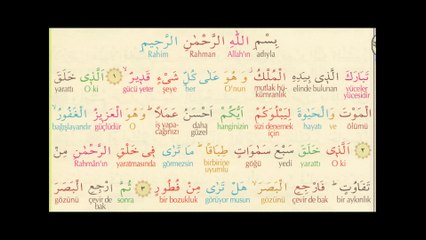 بِسْمِ اللّٰهِ الرَّحْمٰنِ الرَّحِيمِ
adıyla Allah'ın Rahman Rahim
تَبَارَكَ الَّذِى بِيَدِهِ الْمُلْكُ وَهُوَ عَلٰى كُلِّ شَىْءٍ قَدِيرٌ ١ اَلَّذِى خَلَقَ
yüceler yücesidir elinde bulunan mutlak hükümranlık O'nun her şeye gücü yeter O ki yarattı
الْمَوْتَ وَالْحَيٰوةَ لِيَبْلُوَكُمْ اَيُّكُمْ اَحْسَنُ عَمَلاً وَهُوَ الْعَزِيزُ الْغَفُورُ
ölümü ve hayatı sizi denemek için hanginizin daha güzel iş yapacağınızı O güçlüdür bağışlayandır
٢ اَلَّذِى خَلَقَ سَبْعَ سَمٰوَاتٍ طِبَاقًا مَا تَرٰى فِى خَلْقِ الرَّحْمٰنِ مِنْ
O ki yarattı yedi göğü birbirine uyumlu görmezsin yaratmasında Rahmân'ın
تَفَاوُتٍ فَارْجِعِ الْبَصَرَ هَلْ تَرٰى مِنْ فُطُورٍ ٣ ثُمَّ ارْجِعِ الْبَصَرَ
bir aykırılık çevir de bak gözünü görüyor musun bir bozukluk sonra çevir de bak gözünü